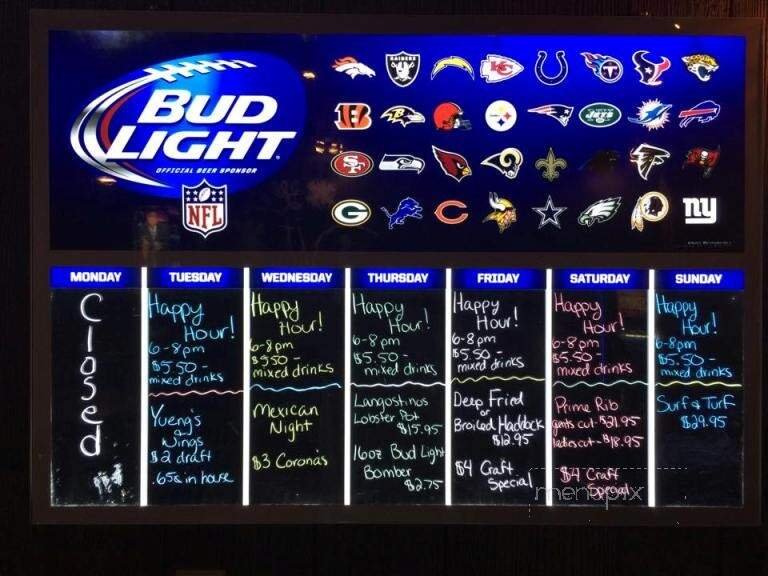 BUD
LIGHT
OFFICIAL BEER SPONSOR
NFL
RAIDERS
JETS
ny
MONDAY
Closed
TUESDAY
Happy
Hour!
6-8pm
$5.50 -
mixed drinks
Yueng's
&
Wings
$2 draft
.65¢ in house
WEDNESDAY
Happy
Hour!
6-8pm
$5.50 -
mixed drinks
Mexican
Night
$3 Corona's
THURSDAY
Happy
Hour!
6-8pm
$5.50 -
mixed drinks
Langostinos
Lobster Pot
$15.95
16oz Bud Light
Bomber
$2.75
FRIDAY
Happy
Hour!
6-8pm
$5.50 -
mixed drinks
Deep Fried
or
Broiled Haddock
$12.95
$4 Craft
Special
SATURDAY
Happy
Hour!
6-8pm
$5.50 -
mixed drinks
Prime Rib
gents cut - $21.95
ladies cut - $18.95
$4 Craft
Special
SUNDAY
Happy
Hour!
6-8pm
$5.50 -
mixed drinks
Surf & Turf
$29.95
menupix